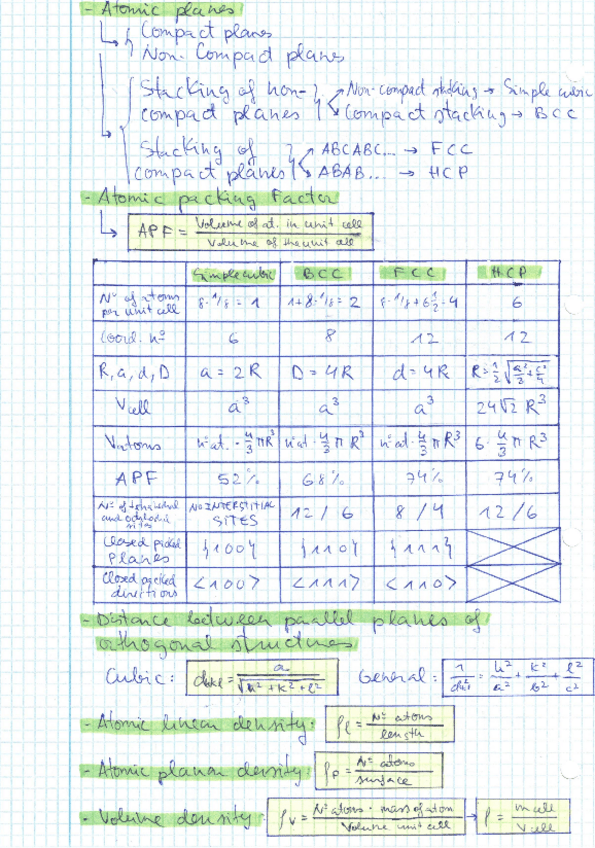 - Atomic planes
Compact planes
Non-Compact planes
Stacking of non-compact planes
Non-compact stacking → Simple cubic
Compact stacking → BCC
Stacking of compact planes
ABCABC... → FCC
ABAB... → HCP
- Atomic packing Factor
APF = Volume of at. in unit cell / Volume of the unit cell
Simple cubic BCC FCC HCP
Nº of atoms per unit cell 8·1/8 = 1 1+8·1/8 = 2 8·1/8+6·1/2=4 6
Coord. nº 6 8 12 12
R, a, d, D a = 2R D = 4R d = 4R R = 1/2 √(a²/3 + c²/4)
Vcell a³ a³ a³ 24√2 R³
Vatoms nº at. · 4/3 πR³ nº at · 4/3 π R³ nº at · 4/3 π R³ 6 · 4/3 π R³
APF 52% 68% 74% 74%
Nº of tetrahedral and octahedral sites NO INTERSTITIAL SITES 12/6 8/4 12/6
Closed packed planes {100} {110} {111}
Closed packed directions <100> <111> <110>
- Distance between parallel planes of
orthogonal structures
Cubic: dhkl = a / √(h² + k² + l²) General: 1/d²hkl = h²/a² + k²/b² + l²/c²
- Atomic linear density: ρl = Nº atoms / length
- Atomic planar density: ρp = Nº atoms / surface
- Volume density: ρv = Nº atoms · mass of atom / Volume unit cell → ρ = m cell / V cell